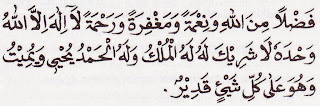 فَضْلًا مِنَ اللهِ وَنِعْمَةً وَمَغْفِرَةً وَرَحْمَةً لَآ اِلٰهَ اِلَّا اللهُ
وَحْدَهُ لَا شَرِيْكَ لَهُ لَهُ الْمُلْكُ وَلَهُ الْحَمْدُ يُحْيِيْ وَيُمِيْتُ
وَهُوَ عَلٰى كُلِّ شَيْئٍ قَدِيْرٌ .